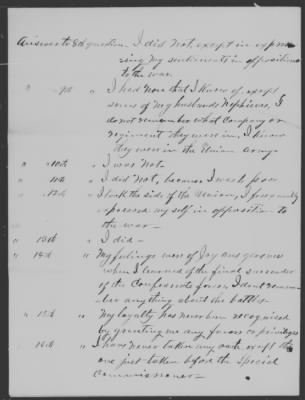 Answer to 8th question, I did not, except in expres-
sing my sentiments in opposition
to the war.
" 9th " I had none that I know of, except
some of my husbands Nephiews, I
do not remember what Company or
regiment they were in, I know
they were in the Union army
" 10th " I was not.
" 11th " I did not, because I was to poor
" 12th " I took the side of the Union, I frequently
expressed my self in opposition to
the war -
" 13th " I did -
" 14th " My feelings were of Joy and
when I learned of the final surrender
of the Confederate forces I dont remem-
ber anything about the battles
" 15th " My loyalty has never been recognised
by granting me any favors or privileges
" 16th " I have never taken any oath except the
one just taken before the Special
Commissioner -